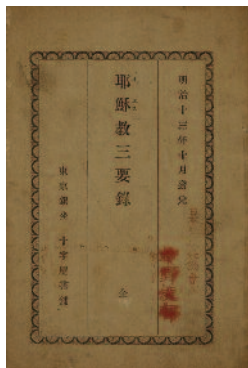 明治十三年十月發兌
耶穌教三要錄
全
東京銀座 十字屋書舗